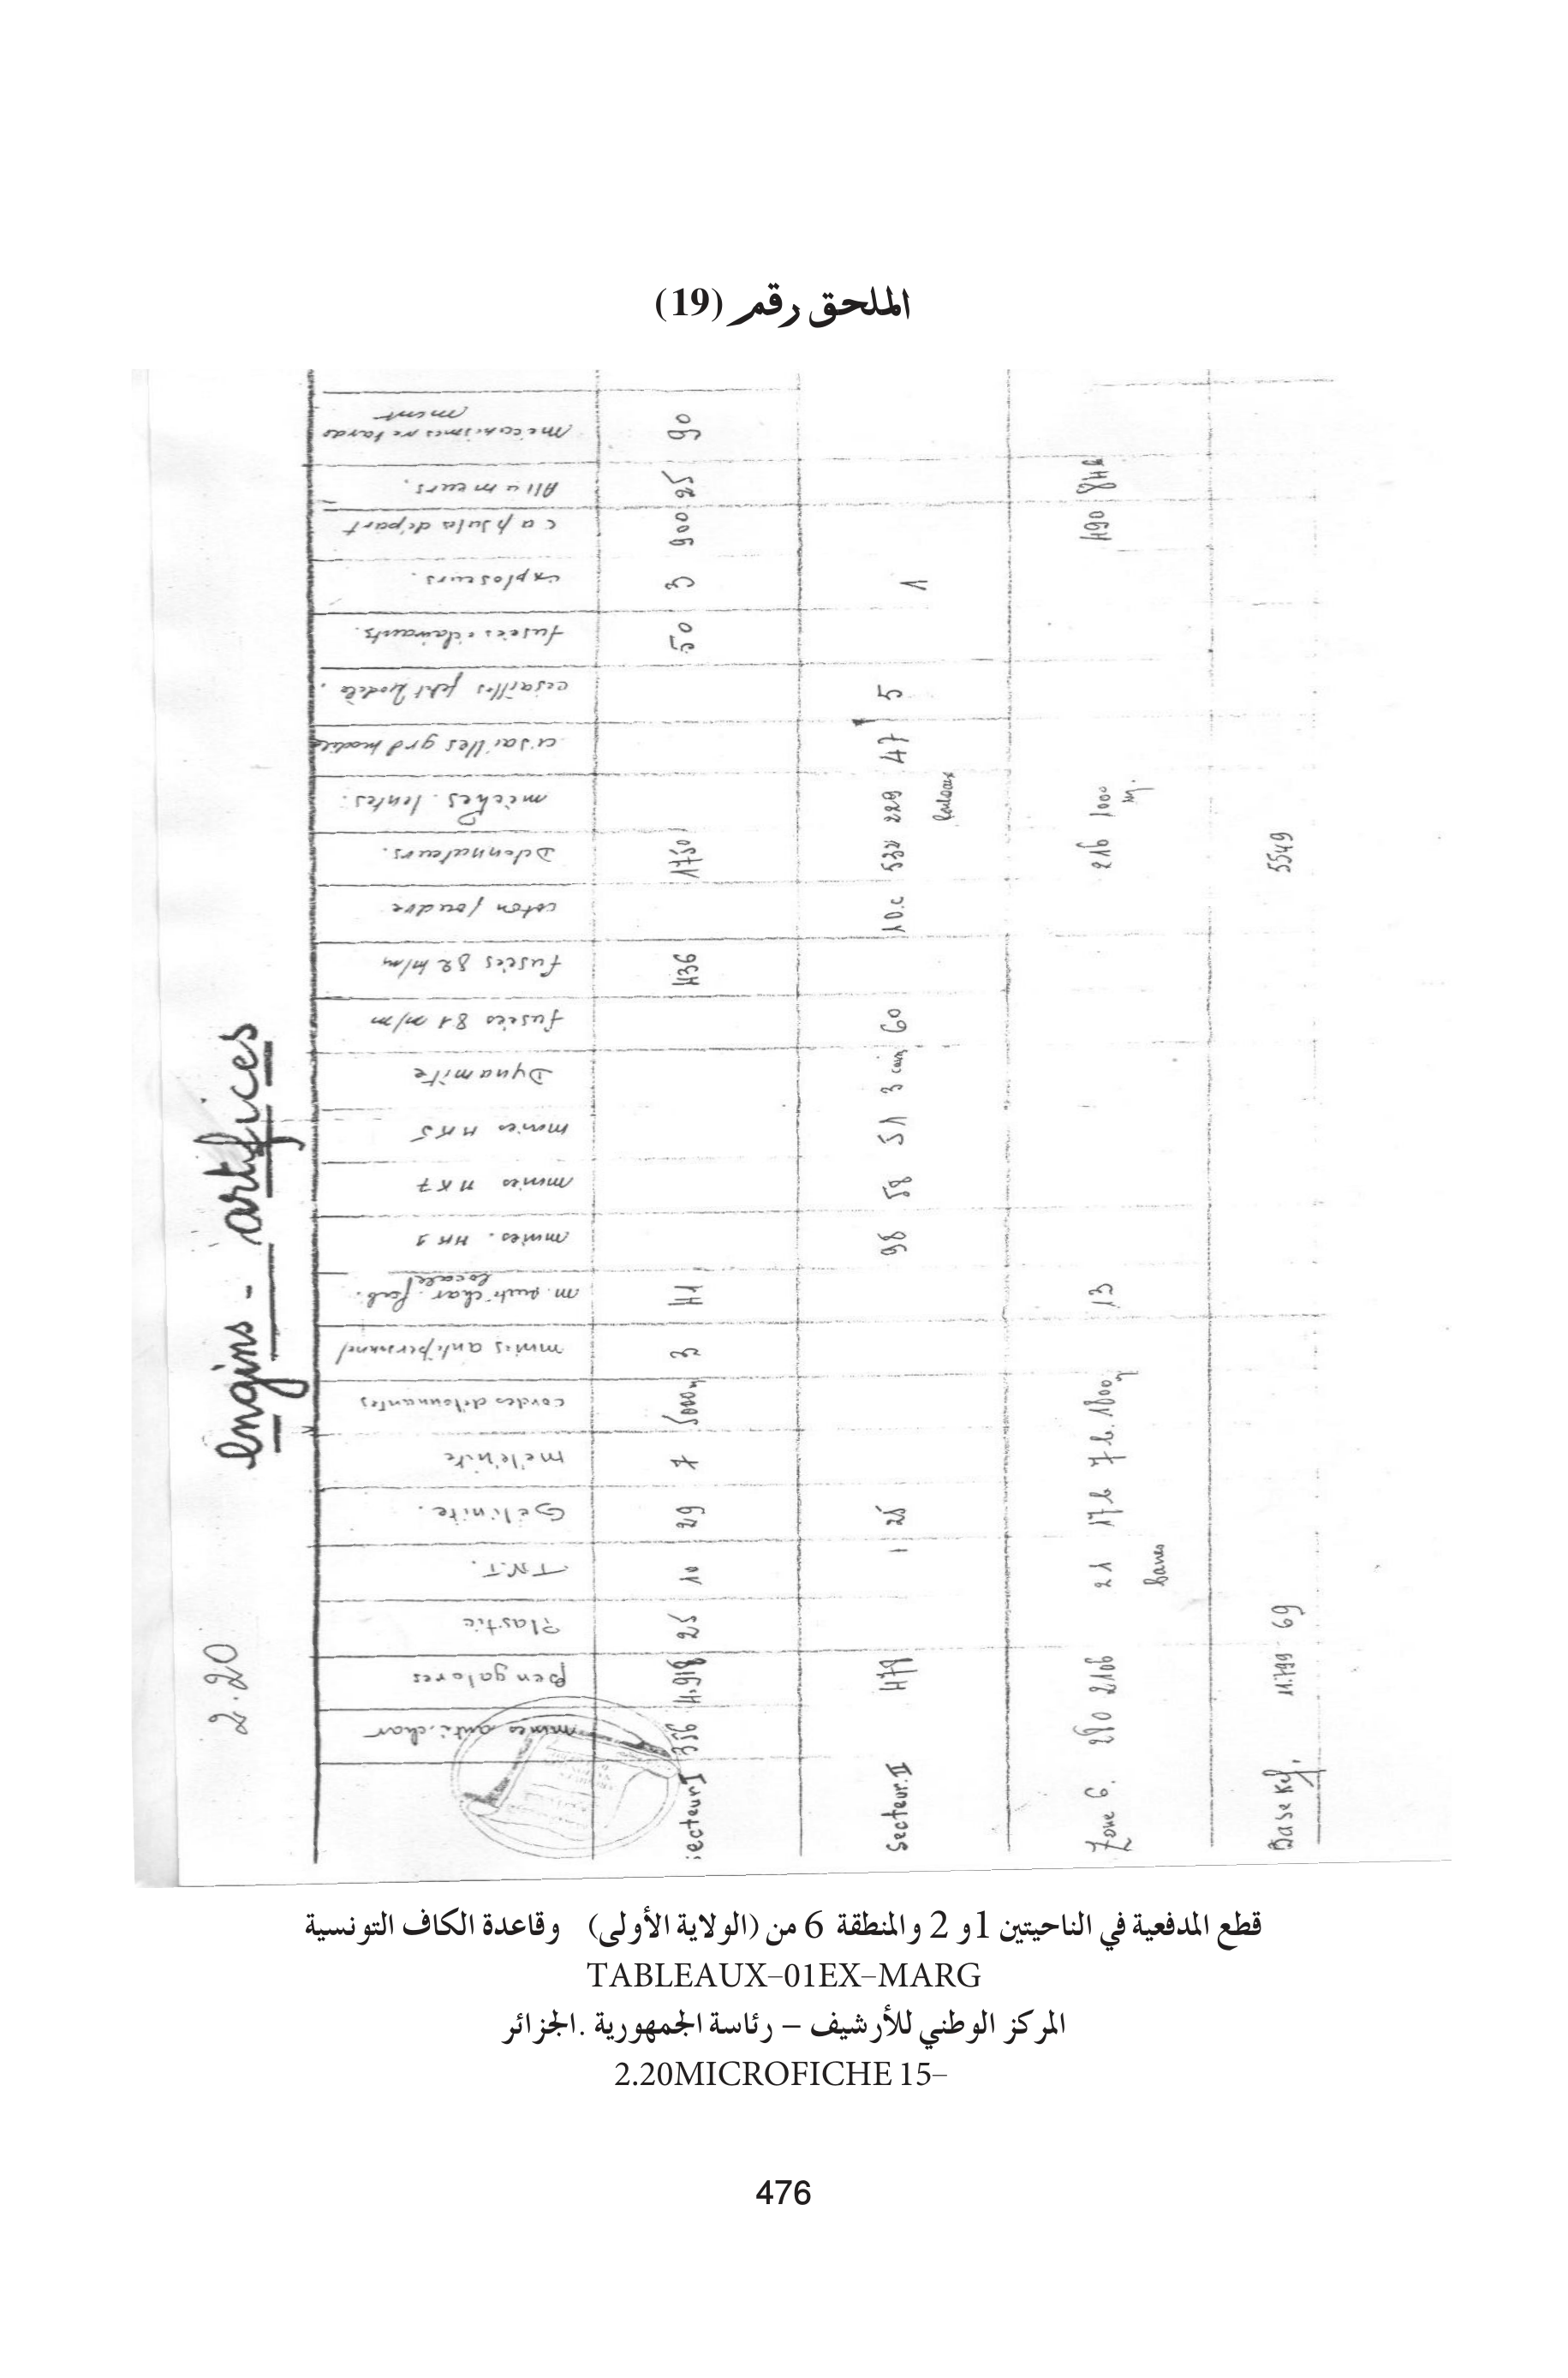 الملحق رقم (19)
2.20
engins - artifices
mines anti-char
Bengalores
Plastic
T.N.T.
Gélinite.
mélénite
cordes détonnantes
mines antipersonnel
m. anti char. fab. locale
mines. MK 1
mines MK 7
mines MK 5
Dynamite
fusées 81 m/m
fusées 82 m/m
coton poudre
Détonnateurs.
mèches. lentes.
cisailles grd modèle
cisailles petit modèle.
fusées éclairants.
exploseurs.
capsule départ
Allumeurs.
mécanismes retardement
Secteur I 356 4.918 25 10 29 7 5000m 3 41 436 1750 50 3 900 25 90
Secteur. II 479 25 98 58 51 3 60 10.c 532 229 rouleaux 47 5 1
Zone 6. 280 2166 21 barres 17 b 7 b. 1800m 13 216 1000 m. 490
Base Kef. 11.799 69 5549
قطع المدفعية في الناحيتين 1و 2 والمنطقة 6 من (الولاية الأولى) وقاعدة الكاف التونسية
TABLEAUX–01EX–MARG
المركز الوطني للأرشيف – رئاسة الجمهورية .الجزائر
2.20MICROFICHE 15–
476